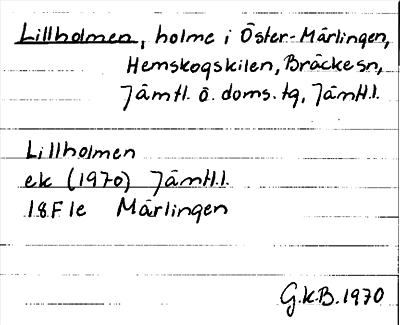 Lillholmen, holme i Öster-Mårlingen,
Hemskogskilen, Bräcke sn,
Jämtl. ö. doms. tg, Jämtl.l.
Lillholmen
ek (1970) Jämtl.l.
18F 1e Mårlingen
G.K.B. 1970